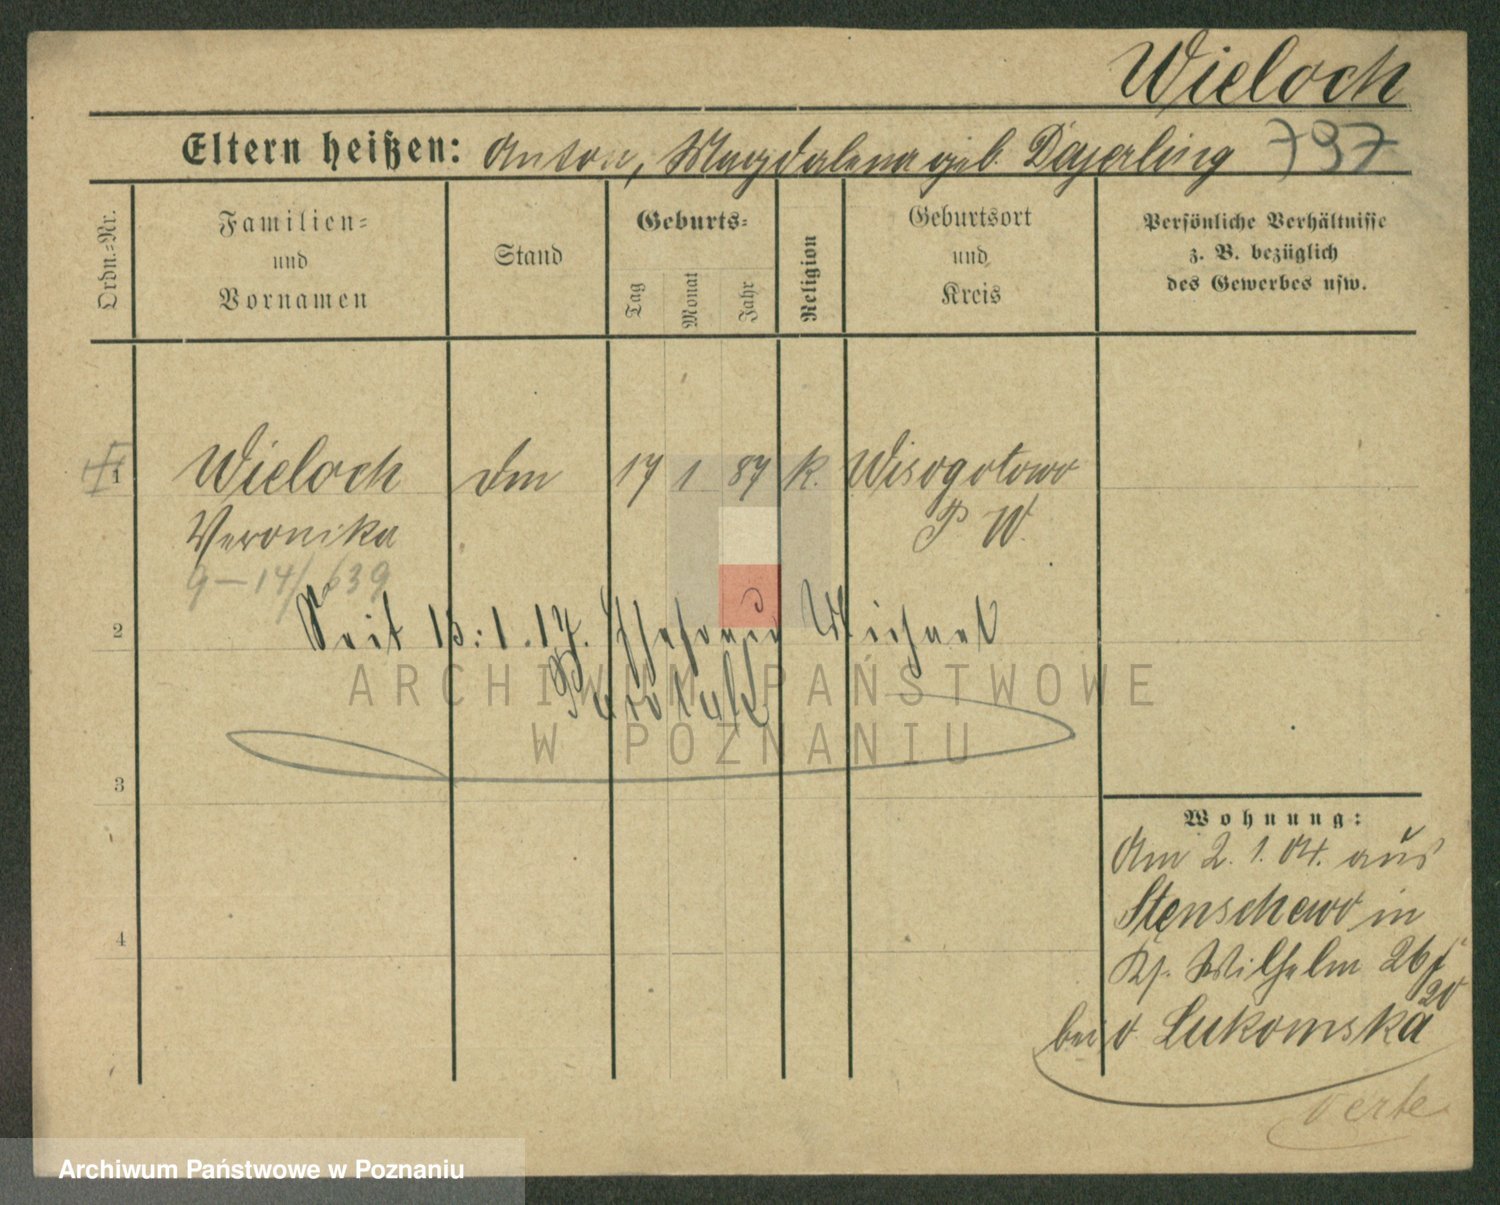 Wieloch
Eltern heißen: Anton, Magdalena geb. Dajerling 797
Ordn.-Nr.
Familien-
und
Vornamen
Stand
Geburts-
Tag
Monat
Jahr
Religion
Geburtsort
und
Kreis
Persönliche Verhältnisse
z. B. bezüglich
des Gewerbes usw.
1 Wieloch Dm 17 1 87 k. Wisogotowo
Veronika P W.
9-14/639
2 Seit 15.1.17. Ehefrau Michael
3
Wohnung:
Am 2. 1. 04. aus
Stenschewo in
4
Kg. Wilhelm 26
20
bei v. Lukomska
verte
ARCHIWUM PAŃSTWOWE
W POZNANIU
Archiwum Państwowe w Poznaniu